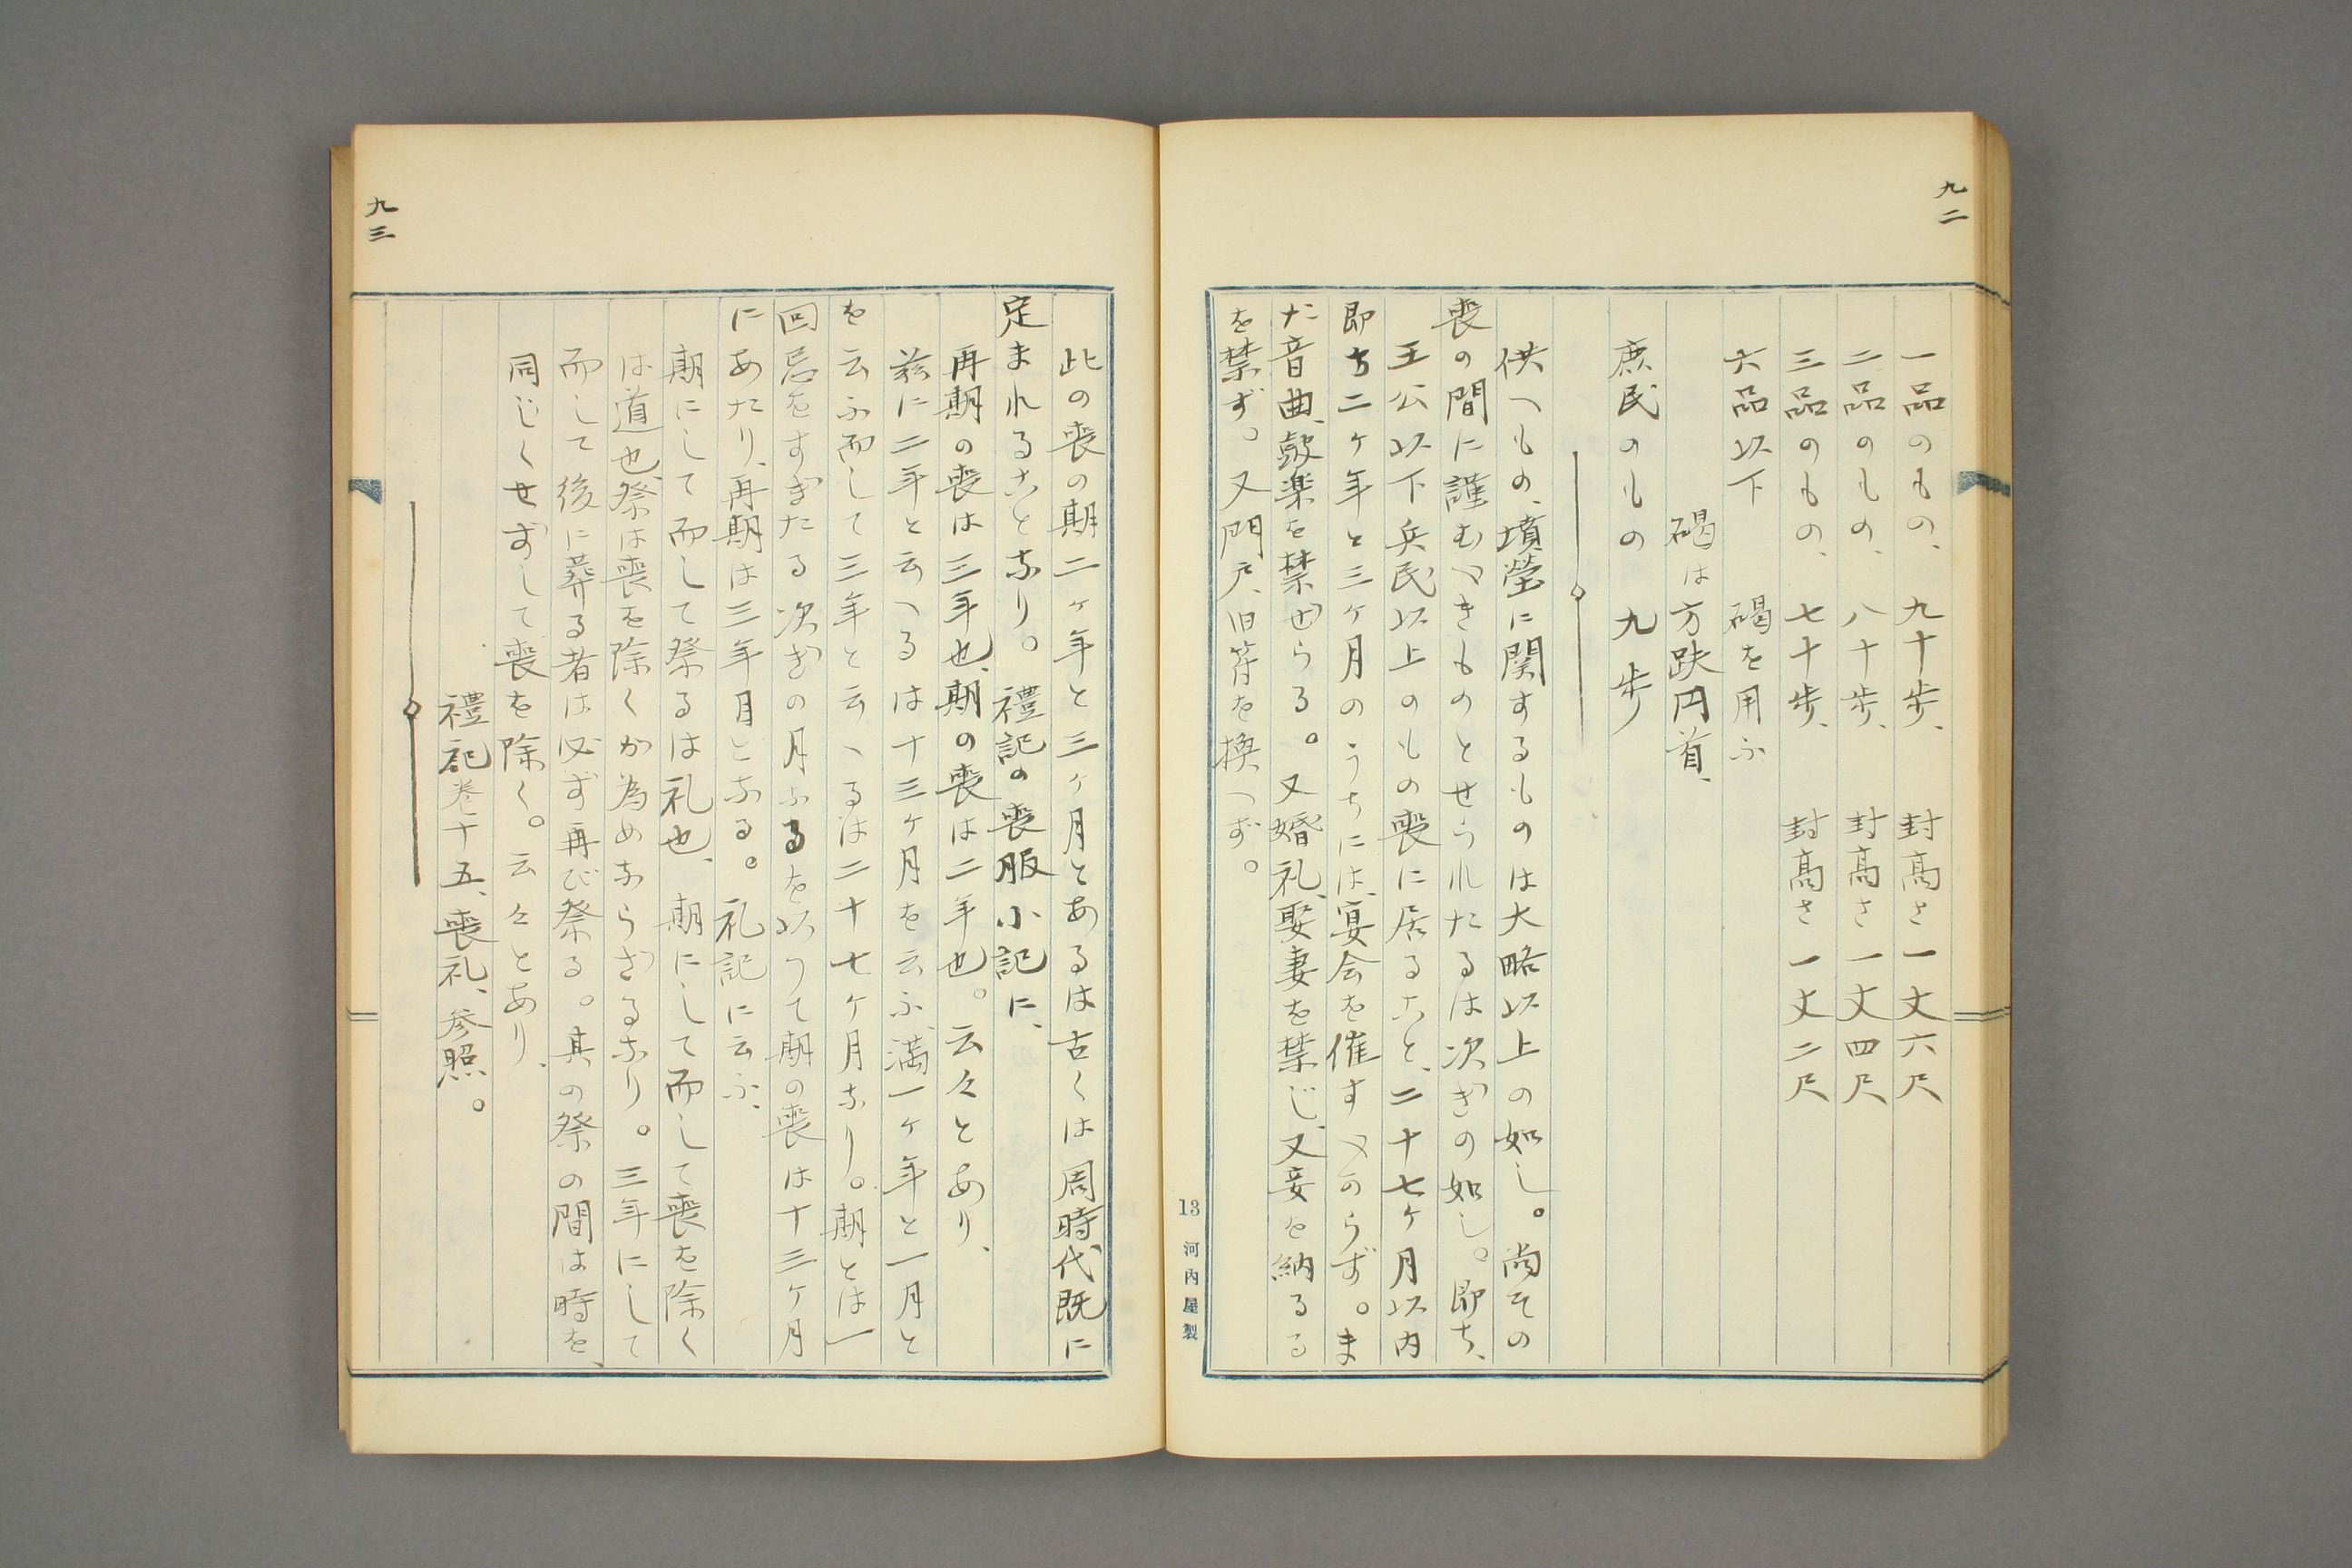 九二
一品のもの、 九十歩、 封高さ一丈六尺
二品のもの、 八十歩、 封高さ一丈四尺
三品のもの、 七十歩、 封高さ一丈二尺
六品以下 碣を用ふ
碣は方趺円首、
庶民のもの 九歩
供へもの、墳塋に関するものは大略以上の如し。尚その
喪の間に謹むべきものとせられたるは次ぎの如し。即ち、
王公以下兵民以上のもの喪に居ること、二十七ヶ月以内
即ち二ヶ年と三ヶ月のうちには、宴会を催すべからず。ま
た音曲、鼓楽を禁ぜらる。又婚礼、娶妻を禁じ、又妾を納るる
を禁ず。又門戸、旧符を換へず。
13 河内屋製
九三
此の喪の期二ヶ年と三ヶ月とあるは古くは周時代既に
定まれることなり。 禮記の喪服小記に、
再期の喪は三年也、期の喪は二年也。云々とあり、
茲に二年と云へるは十三ヶ月を云ふ、満一ヶ年と一月と
を云ふ而して三年と云へるは二十七ヶ月なり。期とは一
回忌をすぎたる次ぎの月なるを以つて期の喪は十三ヶ月
にあたり、再期は三年目となる。礼記に云ふ、
期にして而して祭るは礼也、 期にして而して喪を除く
は道也、祭は喪を除くが為めならざるなり。三年にして
而して後に葬る者は必ず再び祭る。其の祭の間は時を、
同じくせずして喪を除く。云々とあり、
禮記巻十五、喪礼、参照。